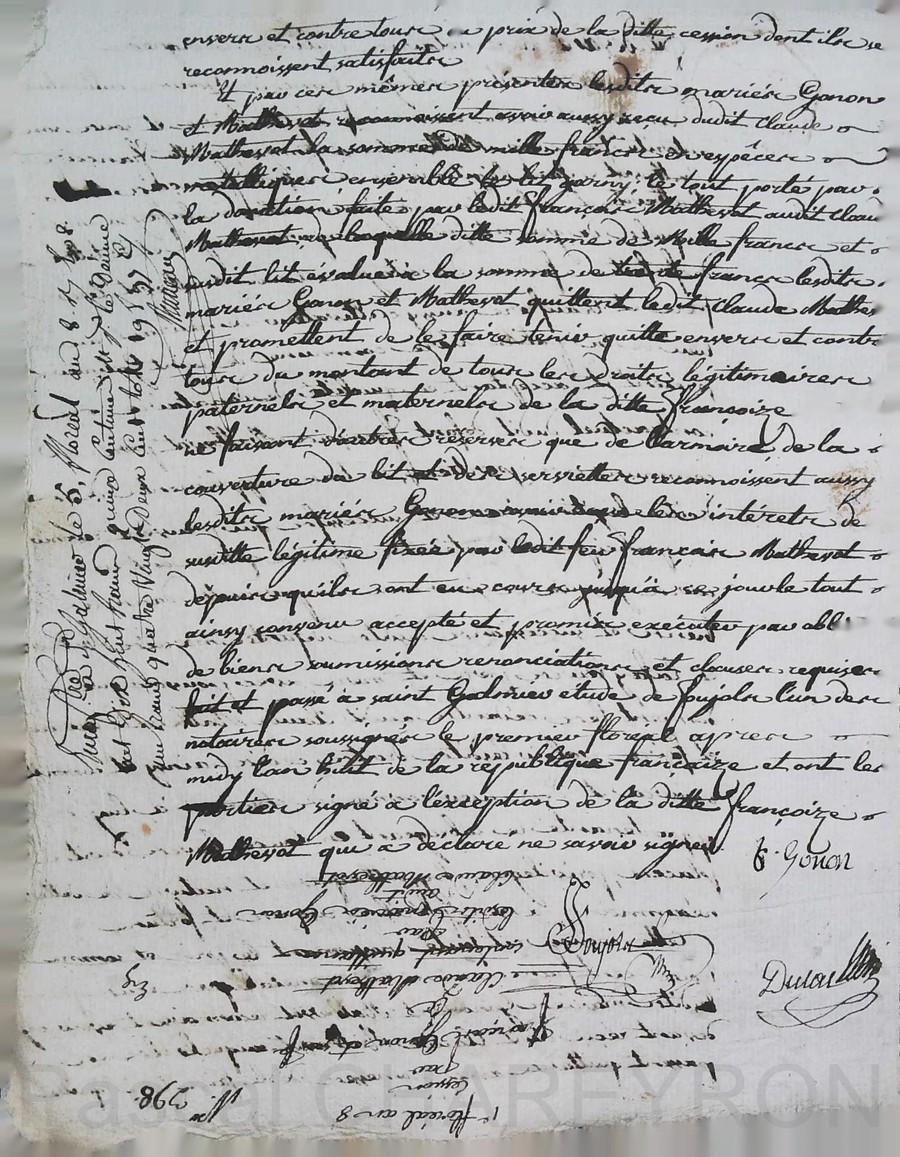 envers et contre tous, prix de la ditte cession dont ils se
reconnoissent satisfaits
Et par ces mêmes présentes lesdits mariés Gonon
et Mathevot reconnoissent avoir aussy reçu dudit Claude
Mathevot la somme de mille francs en espêces
metalliques ensemble le lit garny, le tout porté par
la donation faite par ledit françois Mathevot audit Clau
Mathevot laquelle ditte somme de Mille francs et
susdit lit evalué à la somme de francs lesdits
mariés Gonon et Mathevot quittent ledit Claude Mathe
et promettent de le faire tenir quitte envers et contre
tous du montant de tous les droits légitimaires
paternels et maternels de la ditte françoize
ne faisant d'autres reserves que de l'armoire, de la
couverture du lit et des serviettes reconnoissent aussy
lesdits mariés Gonon avoir les intérets de
susditte légitime fixée par ledit feu françois Mathevot
depuis qu'ils ont eu cours jusqu'à ce jour le tout
ainsy convenu accepté et promis exécuter par obl
de biens soumissions renonciations et clauses requises
fait et passé à saint Galmier etude de poujols l'un des
notaires soussignés le premier floreal apres
midy l'an huit de la république françaize et ont les
parties signé à l'exception de la ditte françoize
Mathevot qui a déclaré ne savoir signer
G. Gonon
Poujols
Ducaillin
Enre à Galmier le 5, floréal an 8 Rf
huit francs quinze centimes
quatre Vingt Deux
1er floréal an 8
Cession
par
mariés Gonon
Claude Mathevot
quittance
par
lesdits mariés Gonon
audit
Claude Mathevot
No 398
Pascal CHAREYRON